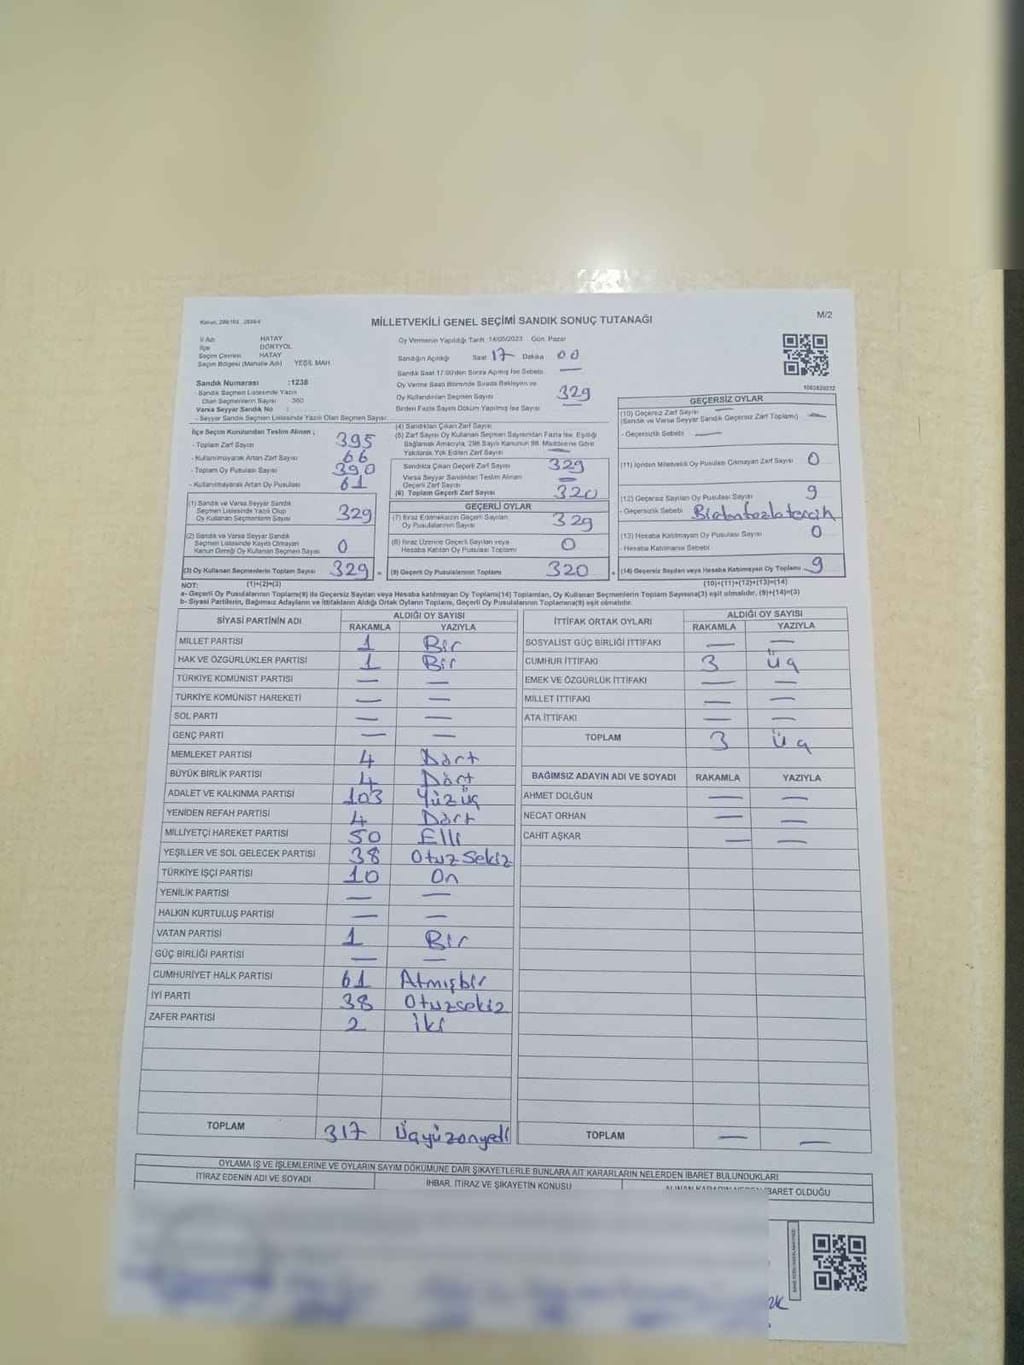 M/2
MİLLETVEKİLİ GENEL SEÇİMİ SANDIK SONUÇ TUTANAĞI
İl Adı HATAY
İlçe DÖRTYOL
Seçim Çevresi HATAY
Seçim Bölgesi (Mahalle Adı) YEŞİL MAH.
Sandık Numarası :1238
- Sandık Seçmen Listesinde Yazılı
Olan Seçmenlerin Sayısı 360
Varsa Seyyar Sandık No :
- Seyyar Sandık Seçmen Listesinde Yazılı Olan Seçmen Sayısı:
Oy Vermenin Yapıldığı Tarih :14/05/2023 Gün: Pazar
Sandığın Açıldığı Saat 17 Dakika 00
Sandık Saat 17:00'den Sonra Açılmış İse Sebebi —
Oy Verme Saati Bitiminde Sırada Bekleyen ve
Oy Kullandırılan Seçmen Sayısı 329
Birden Fazla Sayım Döküm Yapılmış İse Sayısı —
1003829232
İlçe Seçim Kurulundan Teslim Alınan ;
- Toplam Zarf Sayısı 395
- Kullanılmayarak Artan Zarf Sayısı 66
- Toplam Oy Pusulası Sayısı 390
- Kullanılmayarak Artan Oy Pusulası 61
(1) Sandık ve Varsa Seyyar Sandık
Seçmen Listesinde Yazılı Olup
Oy Kullanan Seçmenlerin Sayısı 329
(2) Sandık ve Varsa Seyyar Sandık
Seçmen Listesinde Kayıtlı Olmayan
Kanun Gereği Oy Kullanan Seçmen Sayısı 0
(3) Oy Kullanan Seçmenlerin Toplam Sayısı 329 =
(1)+(2)=(3)
(4) Sandıktan Çıkan Zarf Sayısı
(5) Zarf Sayısı Oy Kullanan Seçmen Sayısından Fazla İse, Eşitliği
Sağlamak Amacıyla, 298 Sayılı Kanunun 98. Maddesine Göre
Yakılarak Yok Edilen Zarf Sayısı —
Sandıkta Çıkan Geçerli Zarf Sayısı 329
Varsa Seyyar Sandıktan Teslim Alınan
Geçerli Zarf Sayısı —
(6) Toplam Geçerli Zarf Sayısı 320
GEÇERLİ OYLAR
(7) İtiraz Edilmeksizin Geçerli Sayılan
Oy Pusulalarının Sayısı 329
(8) İtiraz Üzerine Geçerli Sayılan veya
Hesaba Katılan Oy Pusulası Toplamı 0
(9) Geçerli Oy Pusulalarının Toplamı 320 +
GEÇERSİZ OYLAR
(10) Geçersiz Zarf Sayısı —
(Sandık ve Varsa Seyyar Sandık Geçersiz Zarf Toplamı)
- Geçersizlik Sebebi —
(11) İçinden Milletvekili Oy Pusulası Çıkmayan Zarf Sayısı 0
(12) Geçersiz Sayılan Oy Pusulası Sayısı 9
- Geçersizlik Sebebi Birdenfazla tercih
(13) Hesaba Katılmayan Oy Pusulası Sayısı 0
- Hesaba Katılmama Sebebi
(14) Geçersiz Sayılan veya Hesaba Katılmayan Oy Toplamı 9
(10)+(11)+(12)+(13)=(14)
NOT:
a- Geçerli Oy Pusulalarının Toplamı(9) ile Geçersiz Sayılan veya Hesaba katılmayan Oy Toplamı(14) Toplamları, Oy Kullanan Seçmenlerin Toplam Sayısına(3) eşit olmalıdır. (9)+(14)=(3)
b- Siyasi Partilerin, Bağımsız Adayların ve İttifakların Aldığı Ortak Oyların Toplamı, Geçerli Oy Pusulalarının Toplamına(9) eşit olmalıdır.
SİYASİ PARTİNİN ADI ALDIĞI OY SAYISI
RAKAMLA YAZIYLA
MİLLET PARTİSİ 1 Bir
HAK VE ÖZGÜRLÜKLER PARTİSİ 1 Bir
TÜRKİYE KOMÜNİST PARTİSİ — —
TÜRKİYE KOMÜNİST HAREKETİ — —
SOL PARTİ — —
GENÇ PARTİ — —
MEMLEKET PARTİSİ 4 Dört
BÜYÜK BİRLİK PARTİSİ 4 Dört
ADALET VE KALKINMA PARTİSİ 103 Yüzüç
YENİDEN REFAH PARTİSİ 4 Dört
MİLLİYETÇİ HAREKET PARTİSİ 50 Elli
YEŞİLLER VE SOL GELECEK PARTİSİ 38 Otuz Sekiz
TÜRKİYE İŞÇİ PARTİSİ 10 On
YENİLİK PARTİSİ — —
HALKIN KURTULUŞ PARTİSİ — —
VATAN PARTİSİ 1 Bir
GÜÇ BİRLİĞİ PARTİSİ — —
CUMHURİYET HALK PARTİSİ 61 Atmışbir
İYİ PARTİ 38 Otuzsekiz
ZAFER PARTİSİ 2 İki
TOPLAM 317 Üçyüzonyedi
İTTİFAK ORTAK OYLARI ALDIĞI OY SAYISI
RAKAMLA YAZIYLA
SOSYALİST GÜÇ BİRLİĞİ İTTİFAKI — —
CUMHUR İTTİFAKI 3 üç
EMEK VE ÖZGÜRLÜK İTTİFAKI — —
MİLLET İTTİFAKI — —
ATA İTTİFAKI — —
TOPLAM 3 Üç
BAĞIMSIZ ADAYIN ADI VE SOYADI RAKAMLA YAZIYLA
AHMET DOLĞUN — —
NECAT ORHAN — —
CAHİT AŞKAR — —
TOPLAM — —
OYLAMA İŞ VE İŞLEMLERİNE VE OYLARIN SAYIM DÖKÜMÜNE DAİR ŞİKAYETLERLE BUNLARA AİT KARARLARIN NELERDEN İBARET BULUNDUKLARI
İTİRAZ EDENİN ADI VE SOYADI İHBAR, İTİRAZ VE ŞİKAYETİN KONUSU ALINAN KARARIN NEDEN İBARET OLDUĞU